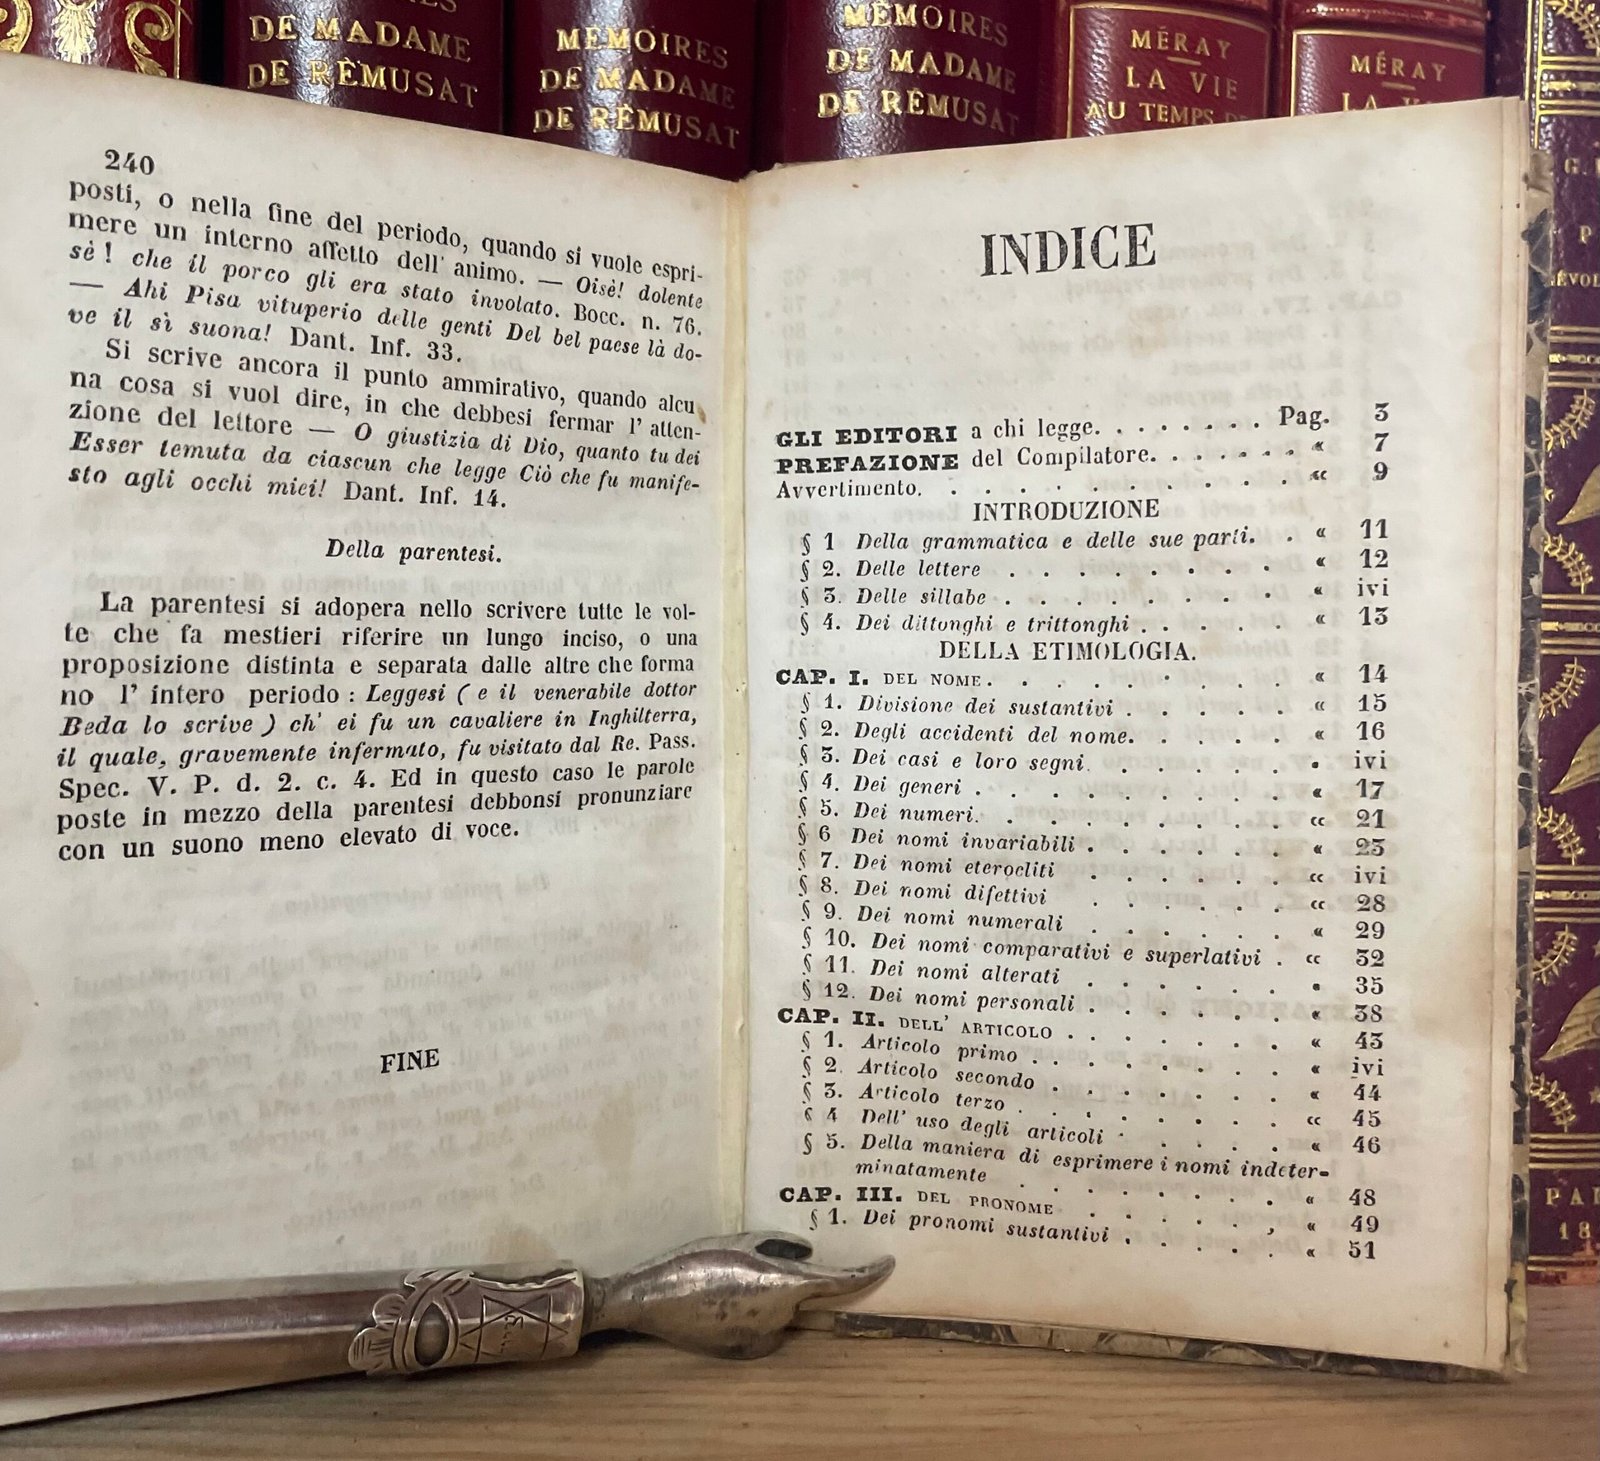 DE MADAME
DE RÉMUSAT
MÉMOIRES
DE MADAME
DE RÉMUSAT
MÉMOIRES
DE MADAME
DE RÉMUSAT
MÉRAY
LA VIE
AU TEMPS
MÉRAY
LA
240
posti, o nella fine del periodo, quando si vuole espri-
mere un interno affetto dell' animo. — Oisè! dolente
sè! che il porco gli era stato involato. Bocc. n. 76.
— Ahi Pisa vituperio delle genti Del bel paese là do-
ve il sì suona! Dant. Inf. 33.
Si scrive ancora il punto ammirativo, quando alcu
na cosa si vuol dire, in che debbesi fermar l' atten-
zione del lettore — O giustizia di Dio, quanto tu dei
Esser temuta da ciascun che legge Ciò che fu manife-
sto agli occhi miei! Dant. Inf. 14.
Della parentesi.
La parentesi si adopera nello scrivere tutte le vol-
te che fa mestieri riferire un lungo inciso, o una
proposizione distinta e separata dalle altre che forma
no l' intero periodo : Leggesi ( e il venerabile dottor
Beda lo scrive ) ch' ei fu un cavaliere in Inghilterra,
il quale, gravemente infermato, fu visitato dal Re. Pass.
Spec. V. P. d. 2. c. 4. Ed in questo caso le parole
poste in mezzo della parentesi debbonsi pronunziare
con un suono meno elevato di voce.
FINE
INDICE
GLI EDITORI a chi legge. . . . . . . . Pag. 3
PREFAZIONE del Compilatore. . . . . . . « 7
Avvertimento. . . . . . . . . . . . « 9
INTRODUZIONE
§ 1 Della grammatica e delle sue parti. . « 11
§ 2. Delle lettere . . . . . . . . « 12
§ 3. Delle sillabe . . . . . . . . « ivi
§ 4. Dei dittonghi e trittonghi . . . . . « 13
DELLA ETIMOLOGIA.
CAP. I. DEL NOME. . . . . . . . . « 14
§ 1. Divisione dei sustantivi . . . . . « 15
§ 2. Degli accidenti del nome. . . . . « 16
§ 3. Dei casi e loro segni. . . . . . • ivi
§ 4. Dei generi . . . . . . . . . « 17
§ 5. Dei numeri. . . . . . . . . « 21
§ 6 Dei nomi invariabili . . . . . . « 23
§ 7. Dei nomi eterocliti . . . . . . « ivi
§ 8. Dei nomi difettivi . . . . . . « 28
§ 9. Dei nomi numerali . . . . . . « 29
§ 10. Dei nomi comparativi e superlativi . « 32
§ 11. Dei nomi alterati . . . . . . • 35
§ 12. Dei nomi personali . . . . . . « 38
CAP. II. DELL' ARTICOLO . . . . . . . « 43
§ 1. Articolo primo . . . . . . . . « ivi
§ 2. Articolo secondo . . . . . . . « 44
§ 3. Articolo terzo . . . . . . . . « 45
§ 4 Dell' uso degli articoli . . . . . « 46
§ 5. Della maniera di esprimere i nomi indeter-
minatamente . . . . . . . . « 48
CAP. III. DEL PRONOME . . . . . . « 49
§ 1. Dei pronomi sustantivi . . . . . « 51